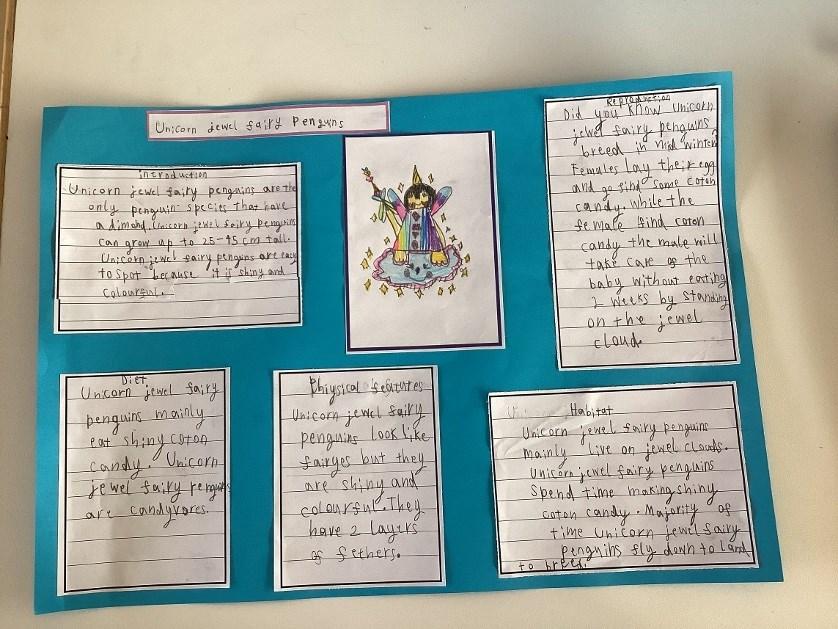 Unicorn jewel fairy Penguns
introduction
Unicorn jewel fairy penguins are the
only penguin species That have
a dimond. Unicorn jewel fairy penguins
can grow up to 25-45 cm tall.
Unicorn jewel fairy penguins are easy
to spot because it is shiny and
colourful.
Reproduction
Did you know Unicorn
jewel fairy penguins
breed in mid winter
Females lay their egg
and go find some coton
candy. While the
female find coton
candy the male will
take care of the
baby without eating
2 weeks by standing
on the jewel
cloud.
Diet
Unicorn jewel fairy
penguins mainly
eat shiny coton
candy. Unicorn
jewel fairy penguins
are candyvores.
Physical featutes
Unicorn jewel fairy
penguins look like
fairyes but they
are shiny and
colourful. They
have 2 layers
of fethers.
Habitat
Unicorn jewel fairy penguins
mainly live on jewel clouds.
Unicorn jewel fairy penguins
spend time making shiny
coton candy. Majority of
time Unicorn jewel fairy
penguins fly down to land
to breed.